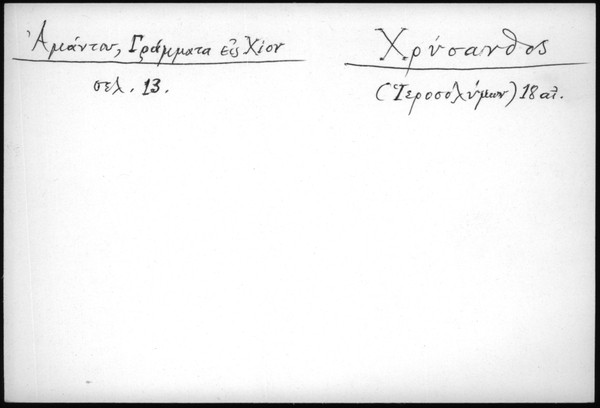 Ἀμάντου, Γράμματα εἰς Χίον
σελ. 13.
Χρύσανθος
(Ἱεροσολύμων) 18 αἰ.